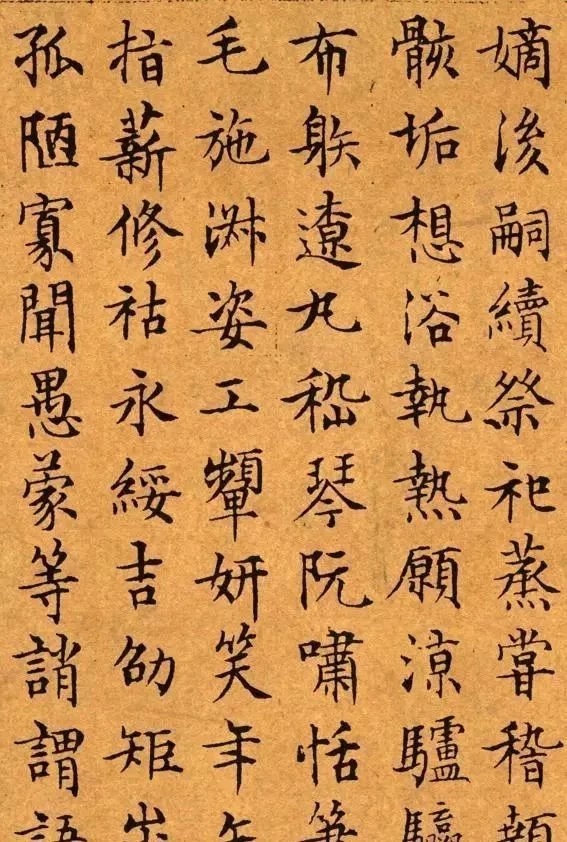 嫡後嗣續祭祀蒸甞稽顙
骸垢想浴執熱願涼驢騾
布射遼丸嵇琴阮嘯恬筆
毛施淑姿工顰妍笑年矢
指薪修祜永綏吉劭矩步
孤陋寡聞愚蒙等誚謂語